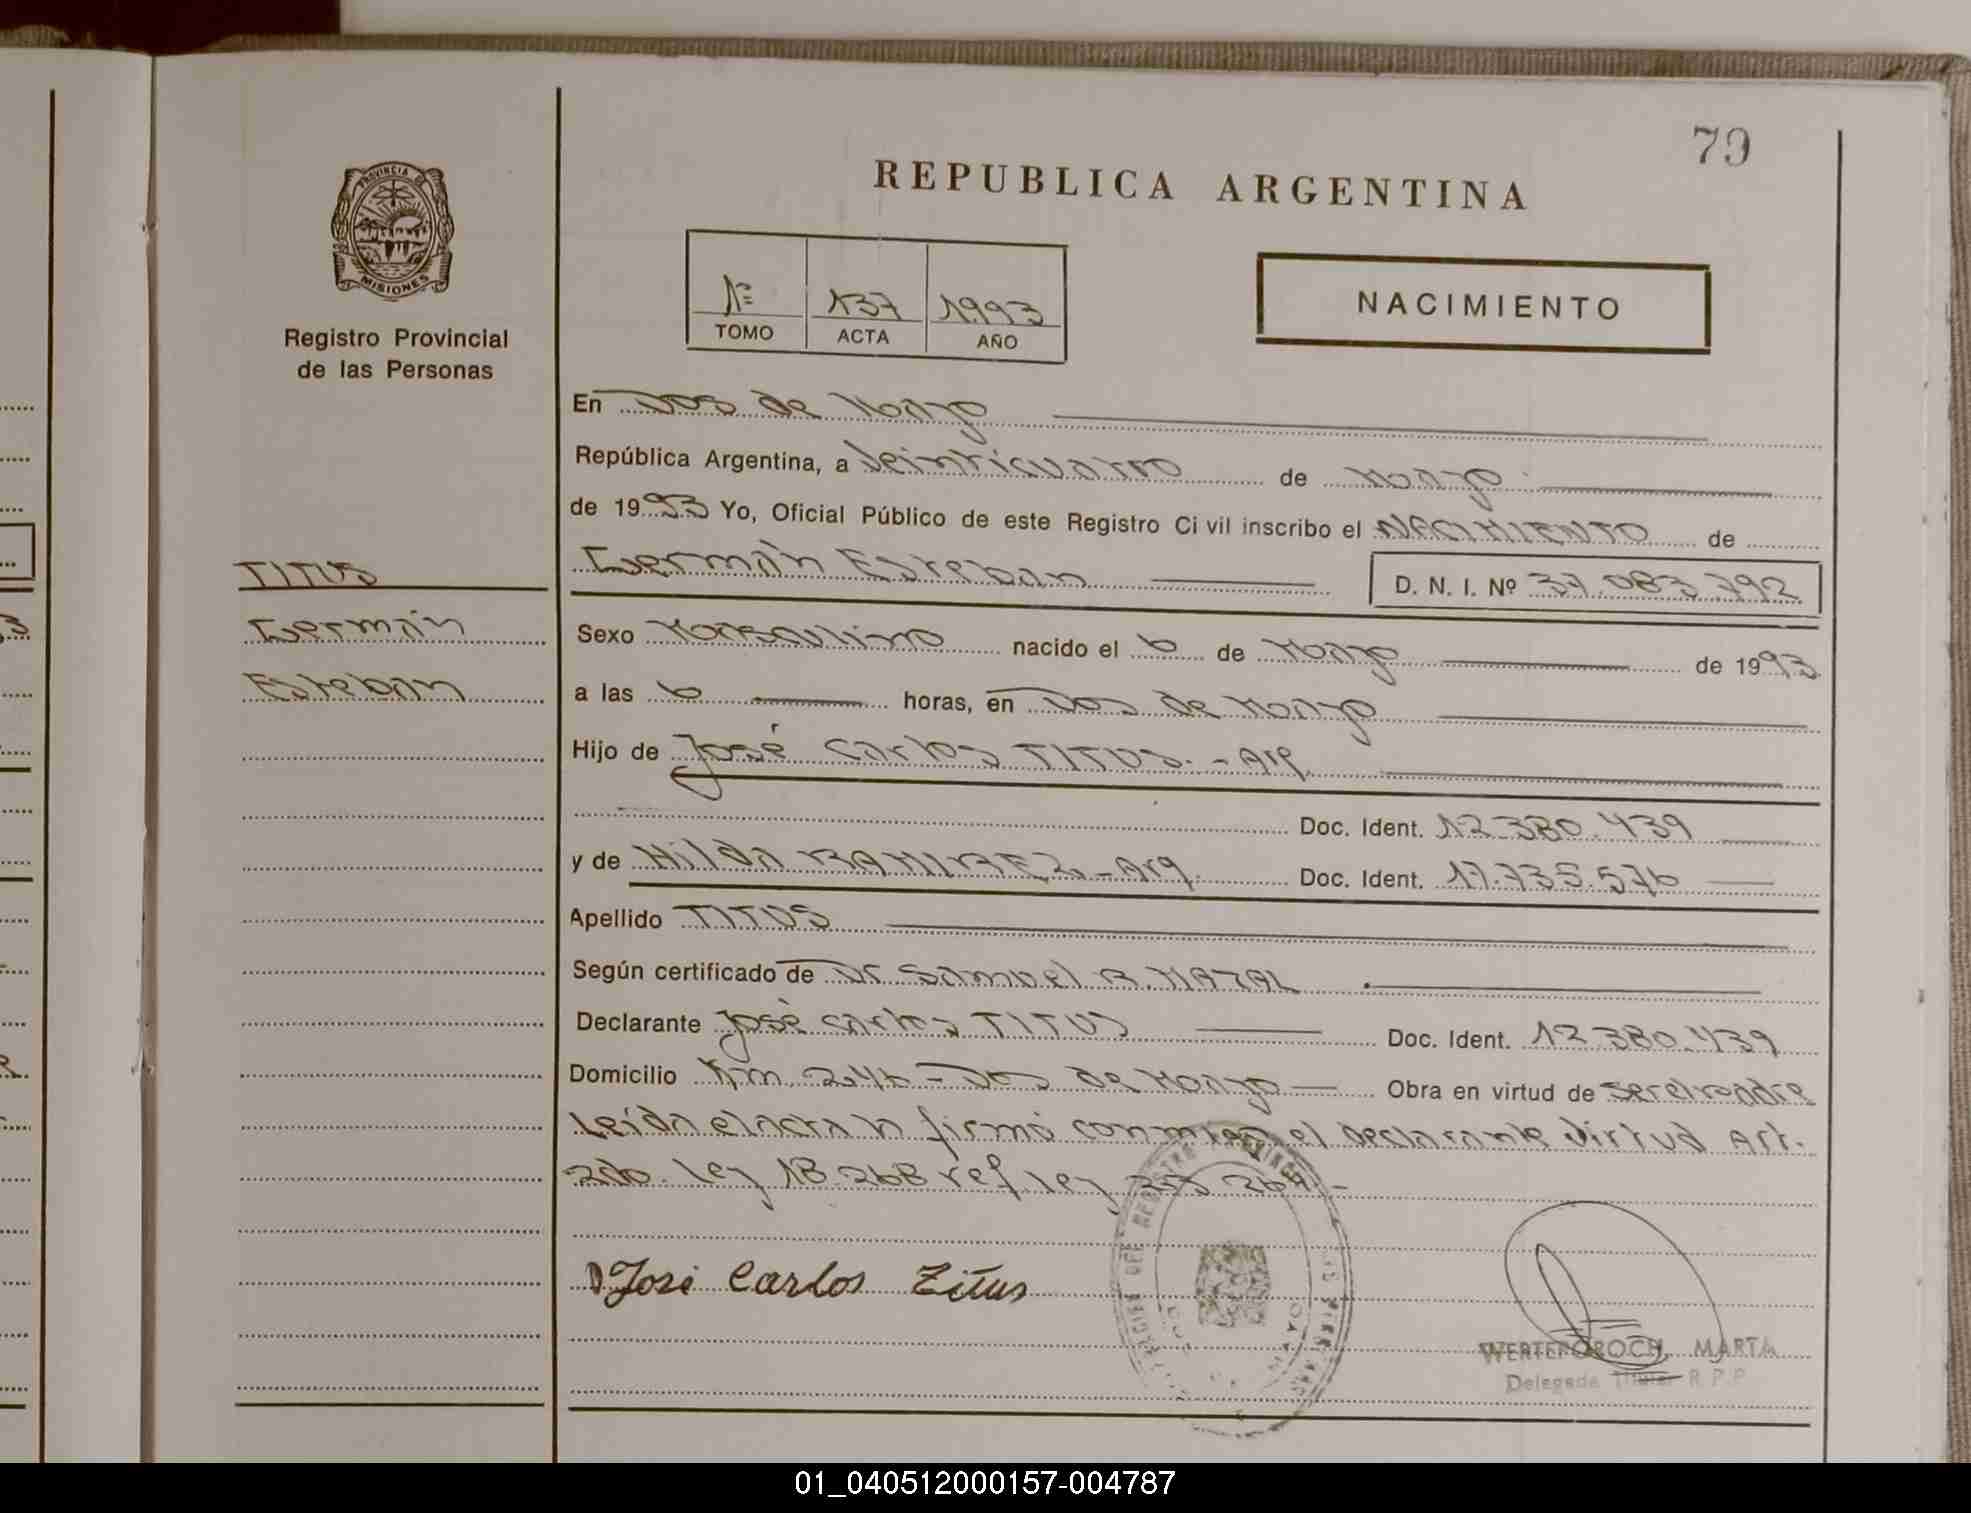 79
REPUBLICA ARGENTINA
PROVINCIA DE
MISIONES
Registro Provincial
de las Personas
1º 137 1993
TOMO ACTA AÑO
NACIMIENTO
En Dos de Mayo
República Argentina, a veinticuatro de Mayo
de 1993 Yo, Oficial Público de este Registro Civil inscribo el NACIMIENTO de
Germán Esteban D. N. I. Nº 37.083.792
TITUS
Germán
Esteban
Sexo Masculino nacido el 6 de Mayo de 1993
a las 6 horas, en Dos de Mayo
Hijo de José Carlos TITUS.-Arg.
Doc. Ident. 12.380.439
y de Hilda RAMIREZ.-Arg. Doc. Ident. 17.735.576
Apellido TITUS
Según certificado de Dr. Samuel R. MAZAL
Declarante José Carlos TITUS Doc. Ident. 12.380.439
Domicilio Km. 246 - Dos de Mayo Obra en virtud de ser el padre
Leída el acta la firmó conmigo el declarante virtud Art.
2do. ley 18.268 ref ley
José Carlos Titus
WERTEPOROCH, MARTA
Delegada Titular R P P
01_040512000157-004787